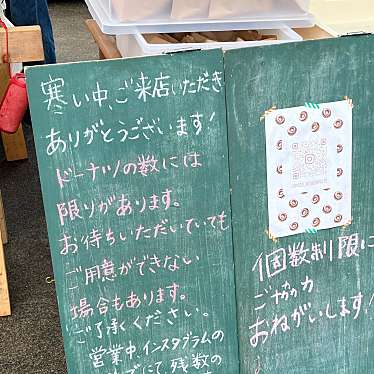 寒い中、ご来店いただき
ありがとうございます!
ドーナツの数には
限りがあります。
お待ちいただいていても
ご用意ができない
場合もあります。
ご了承ください。
営業中、インスタグラムの
にて残数の
個数制限に
ご協力
おねがいします!